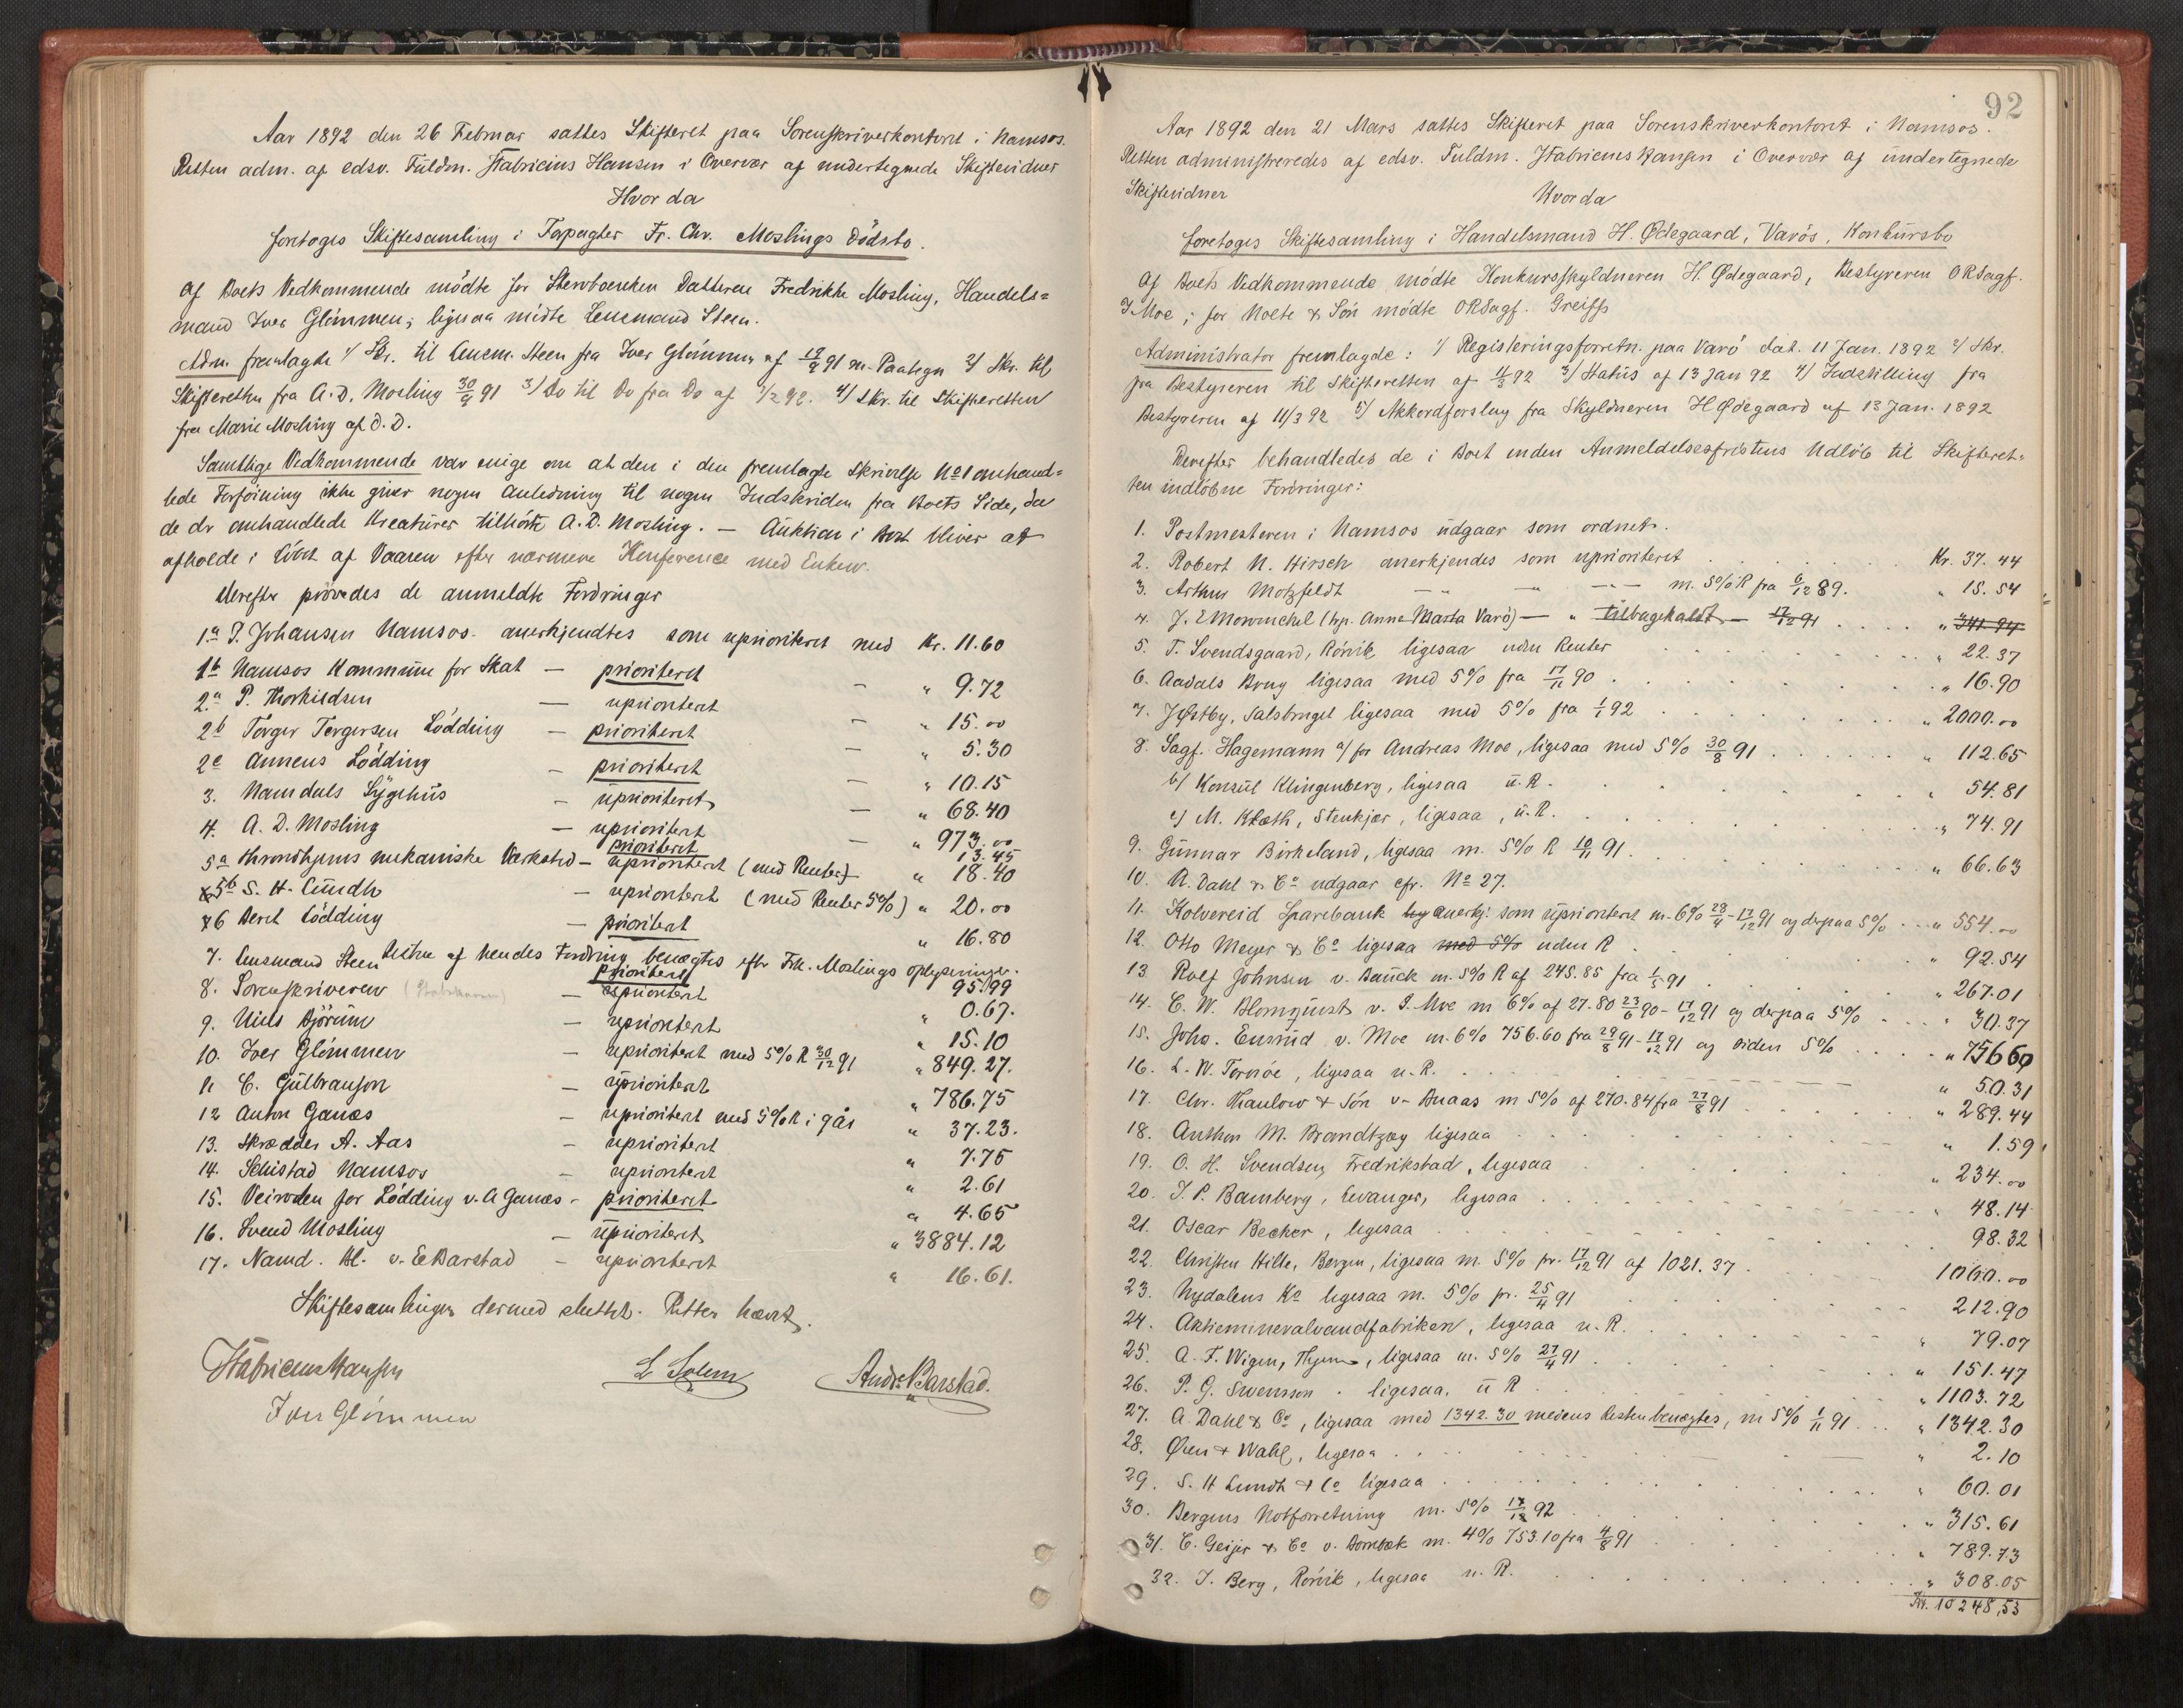 Aar 1892 den 26 Februar sattes Skifteret paa Sorenskriverkontoret i Namsos.
Retten adm. af edsv. Fuldm. Fabricius Hansen i Overvær af undertegnede Skiftevidner
Hvor da
foretoges Skiftesamling i Forpagter Fr. Chr. Moslings Dödsbo.
Af Boets Vedkommende mödte for Stervboenken Datteren Fredrikke Mosling, Handels=
mand Iver Glömmen; ligesaa mödte Lensmand Steen.
Adm. fremlagde 1/ Skr. til Lensm. Steen fra Iver Glömmen af 17/9 91 m. Paategn 2/ Skr. til
Skifteretten fra A. D. Mosling 30/9 91 3/ Do til Do fra Do af 1/2 92. 4/ Skr. til Skifteretten
fra Marie Mosling af D. D.
Samtlige Vedkommende var enige om at den i den fremlagte Skrivelse No 1 omhand=
lede Forföining ikke giver nogen Anledning til nogen Indskriden fra Boets Side, da
de der omhandlede Kreaturer tilhörte A. D. Mosling. — Auktion i Boet bliver at
afholde i Löbet af Vaaren efter nærmere Konference med Enken.
Derefter prövedes de anmeldte Fordringer
1a P. Johansen Namsos anerkjendtes som uprioriteret med Kr. 11.60
1b Namsos Kommune for Skat — prioriteret — " 9.72
2a P. Thorkildsen — uprioriteret — " 15.00
2b Torger Torgersen Lödding — prioriteret — " 5.30
2c Anneus Lödding — prioriteret — " 10.15
3. Namdals Sygehus — uprioriteret — " 68.40
4. A. D. Mosling — uprioriteret — " 973.00
prioriteret 13.45
5a Throndhjems mekaniske Værksted — uprioriteret (med Renter) " 18.40
5b S. H. Lundh — uprioriteret (med Renter 5%) " 20.00
6 Beret Lödding — prioriteret " 16.80
Resten af hendes Fordring benægtes efter Frk. Moslings oplysninger.
7. Lensmand Steen — prioriteret 95.99
8. Sorenskriveren — uprioriteret " 0.67.
9. Niels Björum — uprioriteret " 15.10
10. Iver Glömmen — uprioriteret med 5% R 30/12 91 " 849.27.
11 C. Gulbransen — uprioriteret " 786.75
12 Anton Ganæs — uprioriteret med 5% R i går " 37.23.
13. Skrædder A. Aas — uprioriteret " 7.75
14. Schistad Namsos — uprioriteret " 2.61
15. Veiroden for Lödding v. A Ganæs - prioriteret " 4.65
16. Svend Mosling — uprioriteret " 3884.12
17. Namd. Bl. v. E Barstad — uprioriteret " 16.61.
Skiftesamlingen dermed sluttet. Retten hævet.
Fabricius Hansen L Solem Andr. Barstad.
Iver Glömmen
92
Aar 1892 den 21 Mars sattes Skifteret paa Sorenskriverkontoret i Namsos.
Retten administreredes af edsv. Fuldm. Fabricius Hansen i Overvær af undertegnede
Skiftevidner Hvor da
foretoges Skiftesamling i Handelsmand H. Ødegaard, Varös, Konkursbo
Af Boets Vedkommende mödte Konkursskyldneren H. Ødegaard, Bestyreren ORSagf.
I Moe; for Nolte & Sön mödte ORSagf. Greiff
Administrator fremlagde: 1/ Registeringsforretn. paa Varö dat. 11 Jan. 1892 2/ Skr.
fra Bestyreren til Skifteretten af 11/3 92 3/ Status af 13 Jan 92 4/ Indstilling fra
Bestyreren af 11/3 92 5/ Akkordforslag fra Skyldneren H Ødegaard af 13 Jan. 1892
Derefter behandledes de i Boet inden Anmeldelsesfristens Udlöb til Skifteret=
ten indlöbne Fordringer:
1. Postmesteren i Namsos udgaar som ordnet.
2. Robert N. Hirsch anerkjendes som uprioriteret Kr. 37.44
3. Arthur Motzfeldt — " — " — m. 5% R fra 6/12 89. " 15.54
4. J. E Mowinckel (hyp. Anne Marta Varö) — " tilbagekaldt — 17/12 91 " 341.94
5. T. Svendsgaard, Rörvik ligesaa uden Renter " 22.37
6. Aadals Brug ligesaa med 5% fra 17/11 90 " 16.90
7. J Østby, Salsbruget ligesaa med 5% fra 1/1 92 " 2000.00
8. Sagf. Hagemann a/ for Andreas Moe, ligesaa med 5% 30/8 91 " 112.65
b/ Konsul Klingenberg, ligesaa u. R. " 54.81
c/ M. Kloeth, Stenkjær, ligesaa, u. R. " 74.91
9. Gunnar Birkeland, ligesaa m. 5% R 10/11 91. " 66.63
10. A. Dahl & Co udgaar cfr. No 27.
11. Kolvereid Sparebank anerkj. som uprioriteret m. 6% 28/4 - 17/12 91 og derpaa 5% " 554.00
12. Otto Meyer & Co ligesaa med 5% uden R " 92.54
13 Rolf Johnsen v. Bauck m. 5% R af 245.85 fra 1/5 91 " 267.01
14. C. W. Blomquist v. I. Moe m 6% af 27.80 23/6 90 - 17/12 91 og derpaa 5% " 30.37
15. Johs. Ensrud v. Moe m. 6% 756.60 fra 29/8 91 - 17/12 91 og siden 5% " 756.60
16. L. W. Tornöe, ligesaa u. R. " 50.31
17. Chr. Thaulow & Sön v. Buaas m 5% af 270.84 fra 27/8 91 " 289.44
18. Anthon M. Brandtzæg ligesaa " 1.59
19. O. H. Svendsen, Fredrikstad, ligesaa " 234.00
20. I. P. Bamberg, Levanger, ligesaa " 48.14
21. Oscar Becker, ligesaa 98.32
22. Christen Hille, Bergen, ligesaa m. 5% pr. 17/12 91 af 1021.37 1060.00
23. Nydalens Ko ligesaa m. 5% pr. 25/4 91 212.90
24. Aktiemineralvandfabriken, ligesaa u. R. " 79.07
25. A. F. Wigen, Thjem, ligesaa m. 5% 27/4 91 " 151.47
26. P. G. Swensson. ligesaa. u R " 1103.72
27. A. Dahl & Co, ligesaa med 1342.30 medens Resten benægtes, m 5% 1/11 91 " 1342.30
28. Øien & Wahl, ligesaa " 2.10
29. S. H Lundh & Co ligesaa " 60.01
30. Bergens Notforretning m. 5% 17/12 92 " 315.61
31. C. Geijer & Co v. Bornbæk m. 4% 753.10 fra 4/8 91 " 789.73
32. I. Berg, Rörvik, ligesaa u. R. " 308.05
Kr. 10248,53